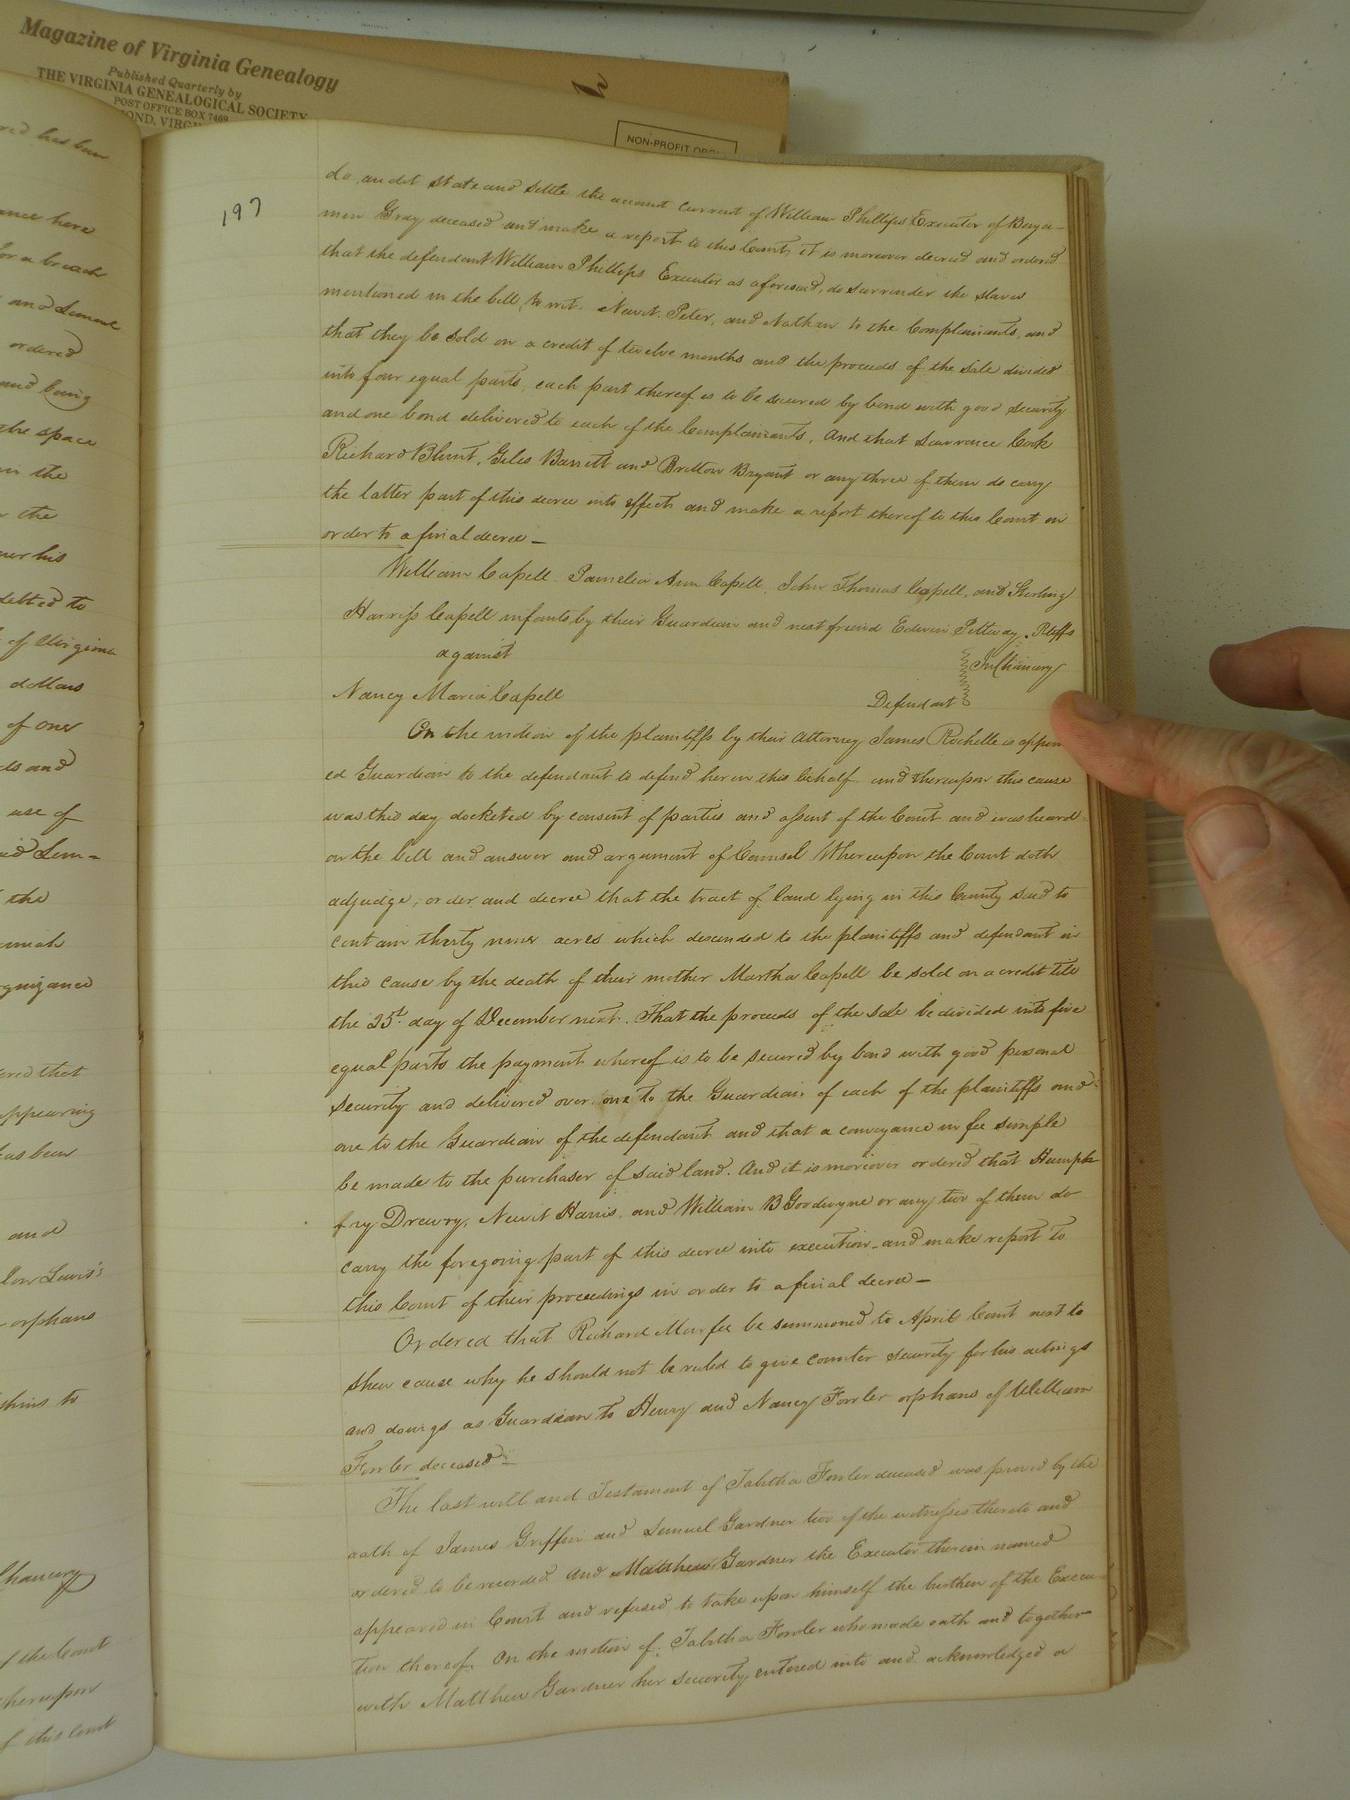 Magazine of Virginia Genealogy
Published Quarterly by
THE VIRGINIA GENEALOGICAL SOCIETY
POST OFFICE BOX 7469
OND, VIRG
NON-PROFIT ORG
red has been
ance here
for a breach
and Lemuel
ordered
and being
the space
in the
the
his
debted to
of Virginia
dollars
of one
and
use of
Lem=
the
ognizance
ered that
appearing
has been
and
Lewis's
orphans
to
Chancery
of the Court
hereupon
of this Court
197
do audit state and settle the account current of William Phillips Executor of Benja-
min Gray deceased and make a report to this Court, it is moreover decreed and ordered
that the defendant William Phillips Executor as aforesaid, do surrender the slaves
mentioned in the bill, to wit. Newit. Peter, and Nathan to the Complainants, and
that they be sold on a credit of twelve months and the proceeds of the sale divided
into four equal parts, each part thereof is to be secured by bond with good security
and one bond delivered to each of the Complainants. And that Lawrence Cook
Richard Blunt, Giles Barrett and Britton Bryant or any three of them do carry
the latter part of this decree into effect and make a report thereof to this Court in
order to a final decree —
William Capell Pamelia Ann Capell, John Thomas Capell, and Sterling
Harriss Capell infants by their Guardian and next friend Edwin Pettway. Pltffs
against
In Chancery
Nancy Maria Capell
Defendant
On the motion of the plaintiffs by their Attorney James Rochelle is appoint
ed Guardian to the defendant to defend her in this behalf and thereupon this cause
was this day docketed by consent of parties and assent of the Court and was heard
on the bill and answer and argument of Counsel Whereupon the Court doth
adjudge, order and decree that the tract of land lying in this County said to
contain thirty nine acres which descended to the plaintiffs and defendant in
this cause by the death of their mother Martha Capell be sold on a credit till
the 25t. day of December next. That the proceeds of the sale be divided into five
equal parts the payment whereof is to be secured by bond with good personal
security and delivered over one to the Guardian of each of the plaintiffs and
one to the Guardian of the defendant and that a conveyance in fee simple
be made to the purchaser of said land. And it is moreover ordered that Humph
fry Drewry, Newit Harris, and William B Goodwyne or any two of them do
carry the foregoing part of this decree into execution and make report to
this Court of their proceedings in order to a final decree —
Ordered that Richard Murfee be summoned to April Court next to
shew cause why he should not be ruled to give counter security for his actings
and doings as Guardian to Henry and Nancy Fowler orphans of William
Fowler deceased —
The last will and Testament of Tabitha Fowler deceased was proved by the
oath of James Griffin and Lemuel Gardner two of the witnesses thereto and
ordered to be recorded And Matthew Gardner the Executor therein named
appeared in Court and refused to take upon himself the burthen of the Execu
tion thereof. On the motion of Tabitha Fowler who made oath and together
with Matthew Gardner her security entered into and acknowledged a